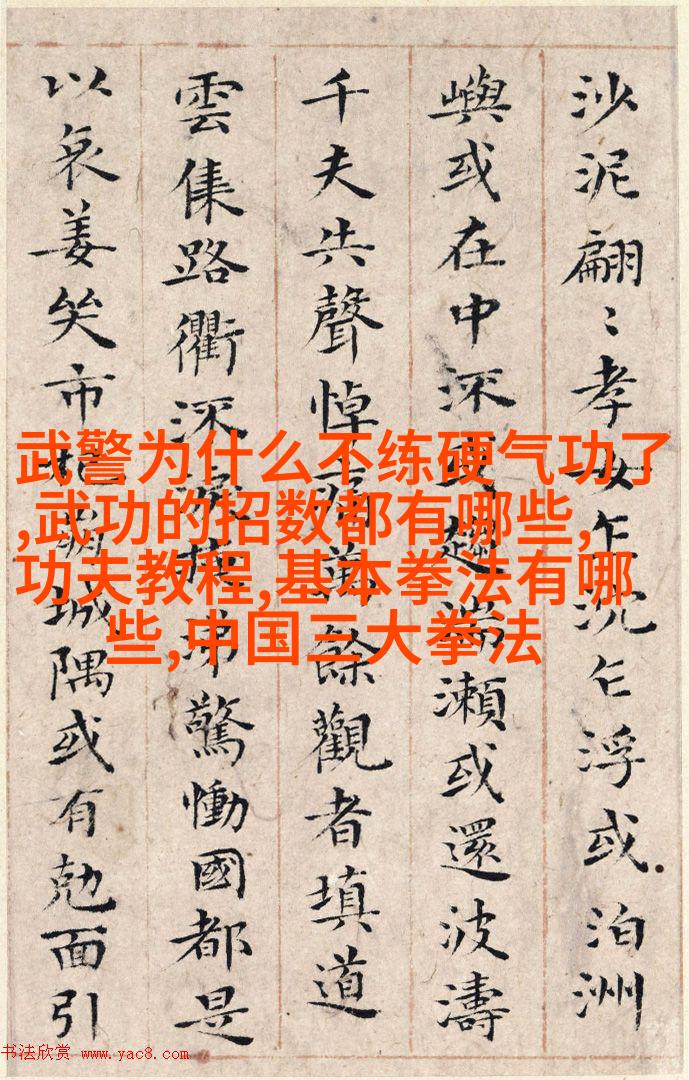 沙泥翩〻孝女乍沉乍浮或泊洲
嶼或在中深或趨湍瀬或還波濤
千夫失聲悼痛萬餘觀者填道
雲集路衢淚掩涕驚慟國都是
以哀姜哭市杞崩城隅或有勊面引
武警为什么不练硬气功了
,武功的招数都有哪些,
功夫教程,基本拳法有哪
些,中国三大拳法
书法欣赏 www.yac8.com